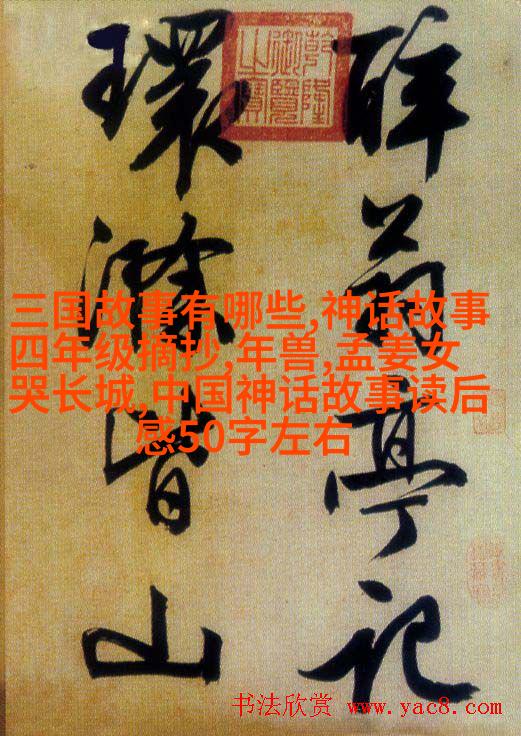 醉翁亭記
環滁皆山
乾隆
御覽
之寶
三国故事有哪些,神话故事
四年级摘抄,年兽,孟姜女
哭长城,中国神话故事读后
感50字左右
书法欣赏 www.yac8.com